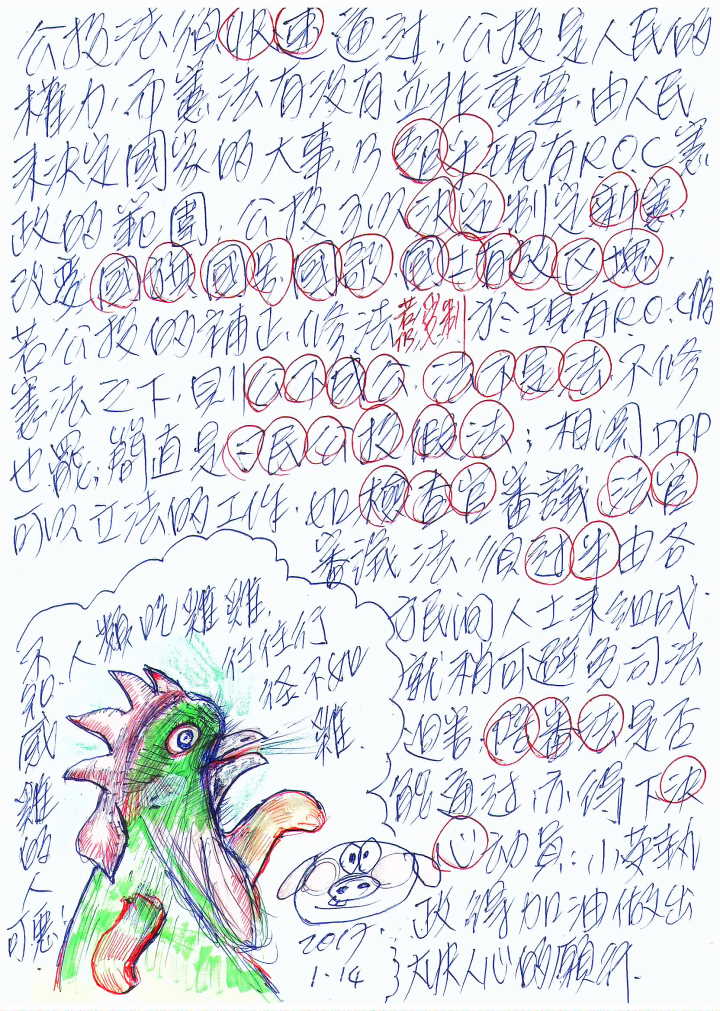 公投法須快速通過，公投是人民的
權力，而憲法有沒有並非重要，由人民
來決定國家的大事，乃超乎現有R.O.C憲
政的範圍，公投可以決定制定新憲，
改變國旗、國號、國歌、國土有改区塊，
若公投的補正、修法若仍受制於現有R.O.C的
憲法之下，則公不成公，法不是法，不修
也罷，簡直是國民公投假法；相深DPP
可以立法的工作，如檢查官審議法官
審議法，須过半由各
方民间人士來組成，
就稍可避免司法
迫害，陪審法是否
能通过亦得下決
心动員：小英執
政得加油做出
大快人心的願行.
人類吃雞雞，
往往行
径不如
雞.
不知感雞的人
可惡！
2017.
1.14